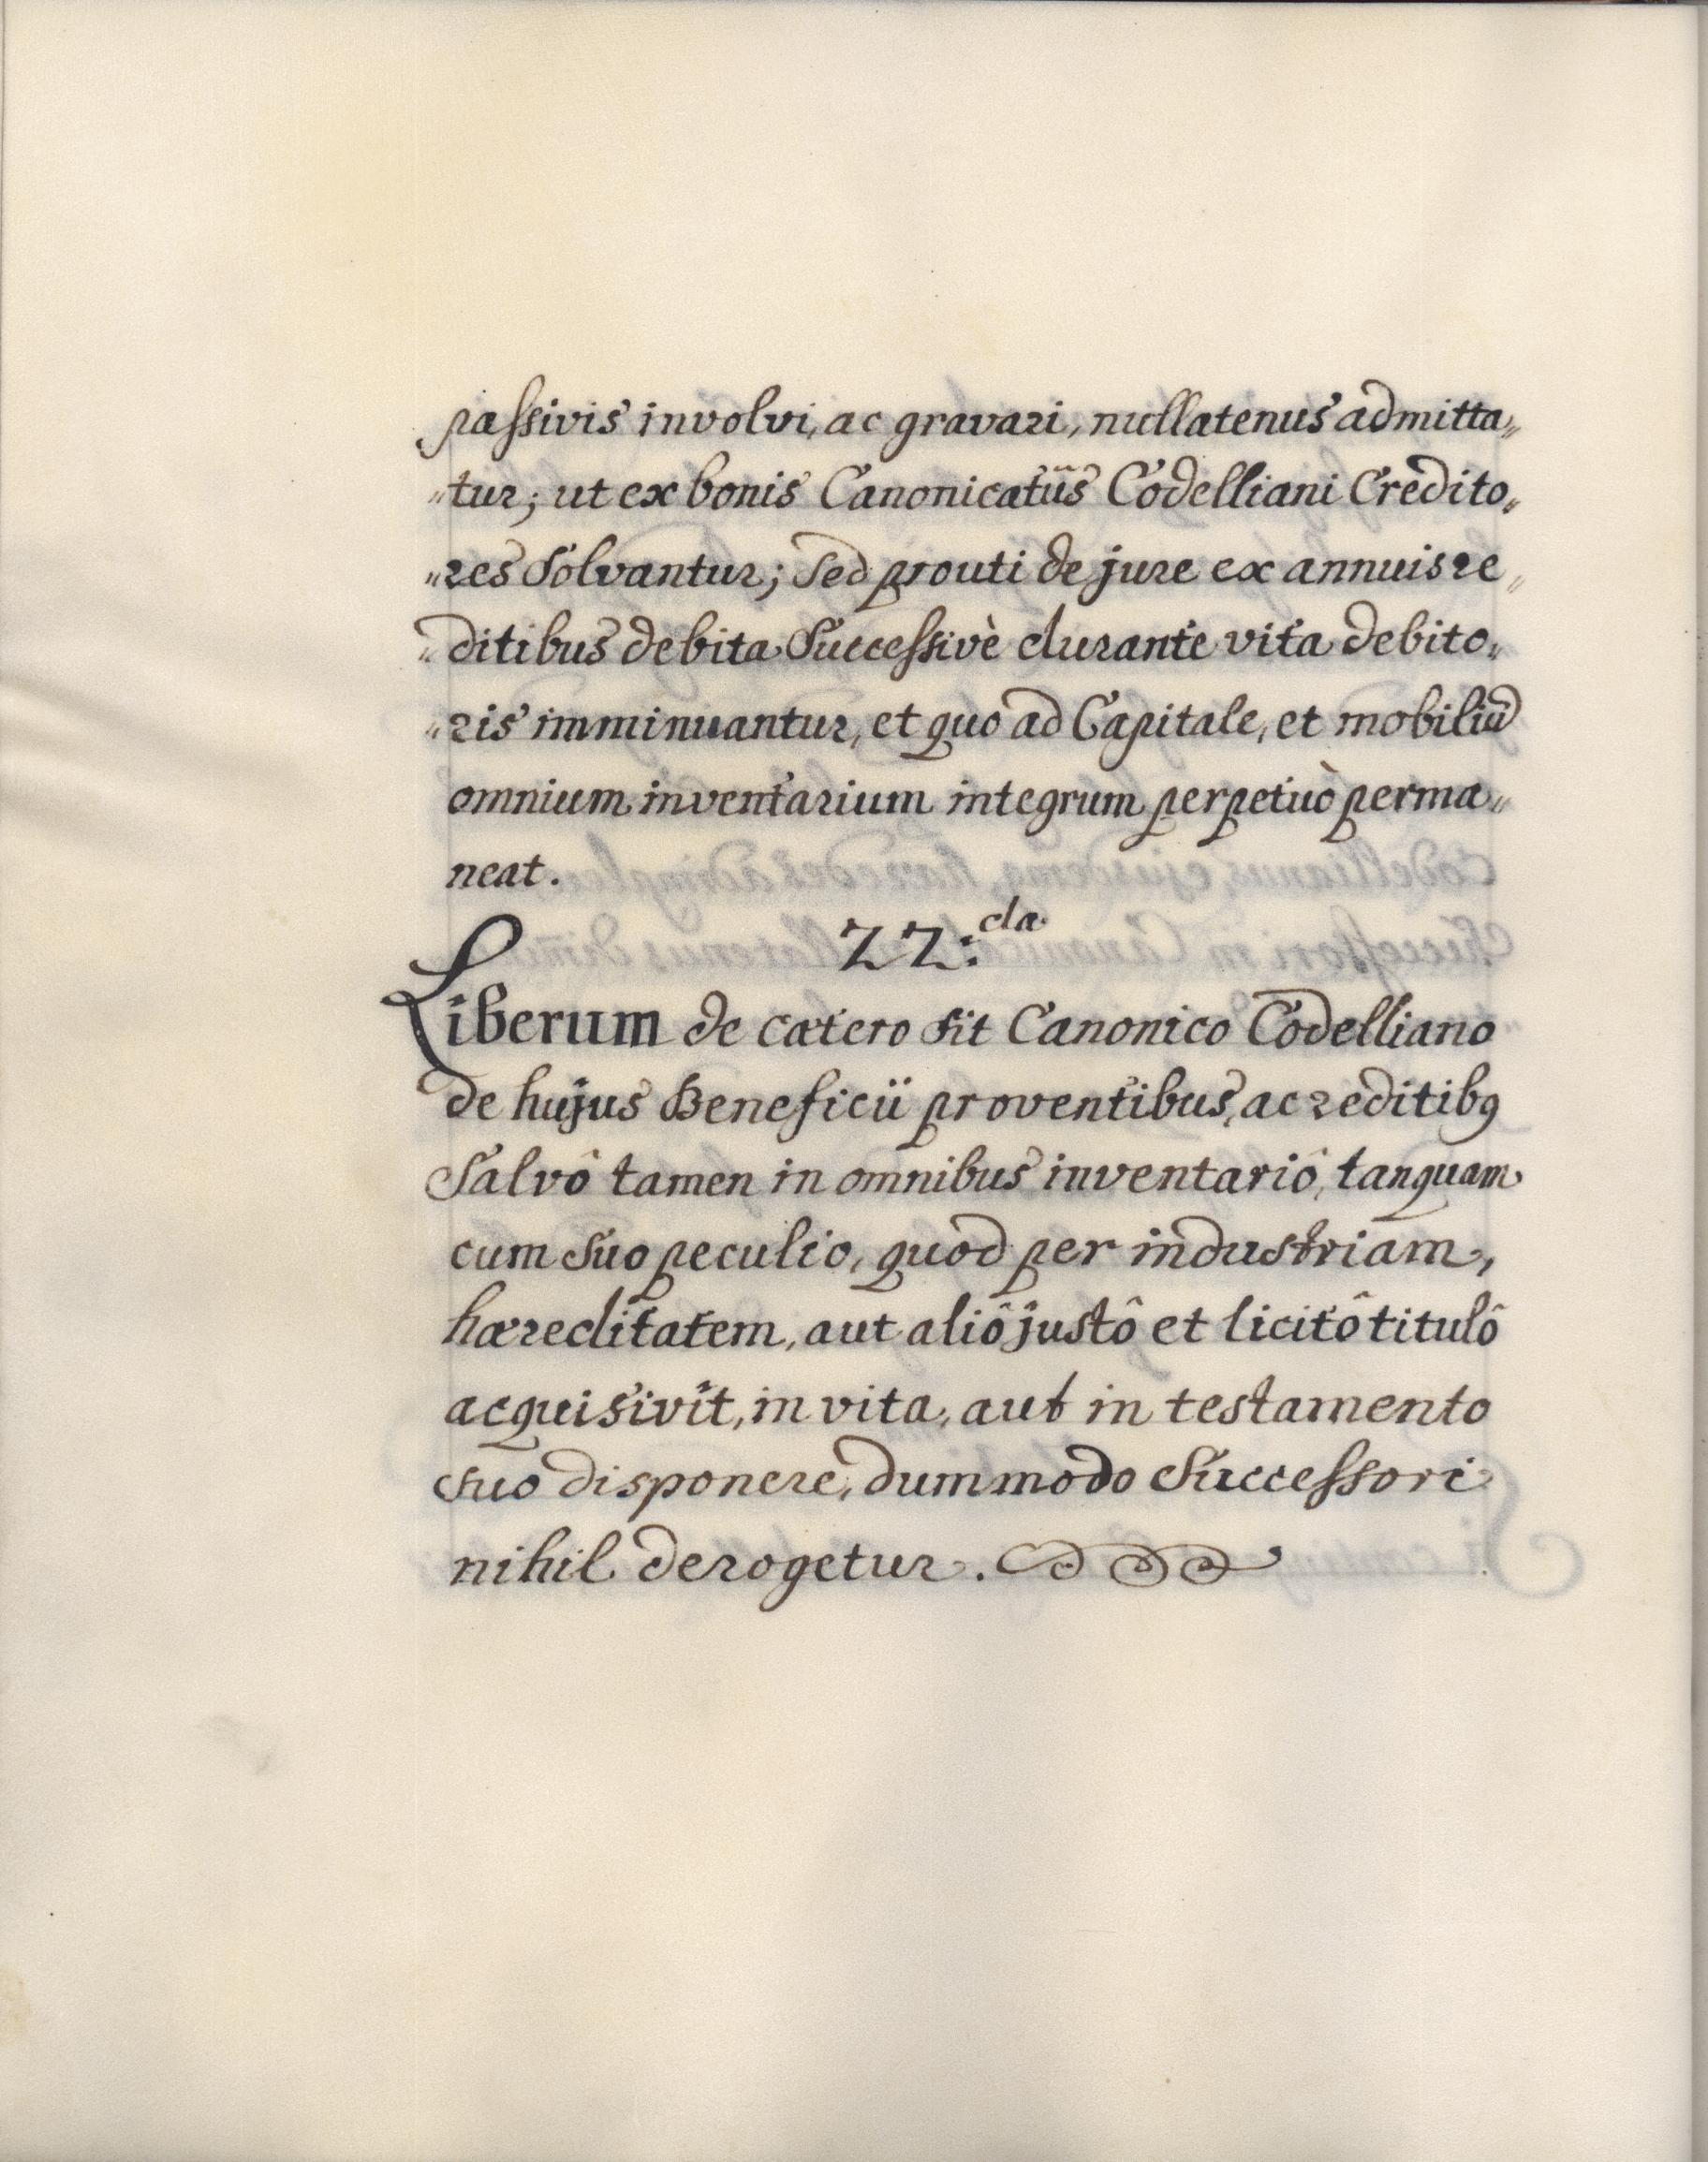 passivis involvi, ac gravari, nullatenus admitta„
„tur; ut ex bonis Canonicatûs Codelliani Credito„
„res Solvantur; Sed prouti de jure ex annuis re„
„ditibus debita Successivè durante vita debito„
„ris imminuantur, et quo ad Capitale, et mobiliũ
omnium inventarium integrum perpetuò perma„
neat.
22:da
Liberum de cætero sit Canonico Codelliano
de hujus Beneficii proventibus, ac reditibꝰ
Salvô tamen in omnibus inventariô, tanquam
cum Suo peculio, quod per industriam,
hæreditatem, aut aliô justô et licitô titulô
acquisivit, in vita, aut in testamento
suo disponere, dummodo Successori
nihil derogetur.